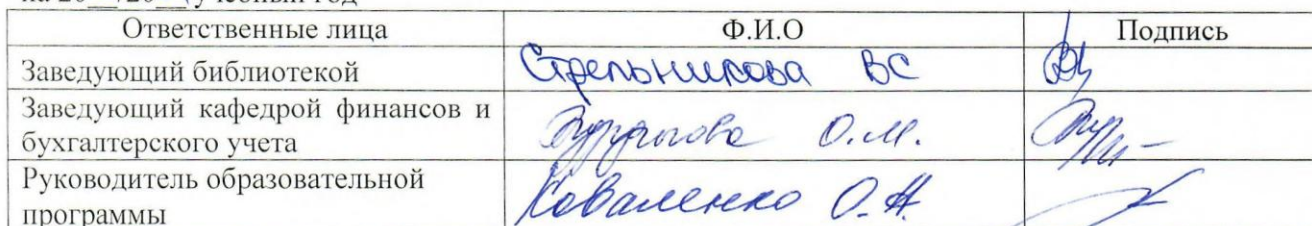 Ответственные лица Ф.И.О Подпись
Заведующий библиотекой Стрельникова ВС
Заведующий кафедрой финансов и
бухгалтерского учета О.М.
Руководитель образовательной
программы Коваленко О.Н